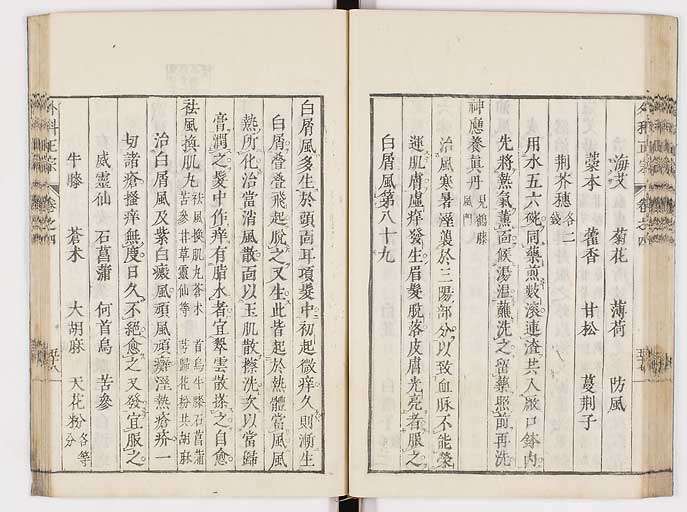 海艾 菊花 薄荷 防風
藁本 藿香 甘松 蔓荊子
荊芥穗各二錢
用水五六碗同藥煎數滾連渣共入敞口鉢內
先將熱氣薰面候湯溫蘸洗之留藥照前再洗
神應養真丹見鶴膝風門
治風寒暑溼襲於三陽部分以致血脉不能榮
運肌膚虛痒發生眉髮脫落皮膚光亮者服之
白屑風第八十九
白屑風多生於頭面耳項髮中初起微痒久則漸生
白屑疊疊飛起脫之又生此皆起於熱體當風風
熱所化治當消風散面以玉肌散擦洗次以當歸
膏潤之髮中作痒有脂水者宜翠雲散搽之自愈
祛風換肌丸祛風換肌丸蒼朮 首烏牛膝石菖蒲苦參甘草靈仙等 芎歸花粉共胡麻
治白屑風及紫白癜風頑風頑癬溼熱瘡疥一
切諸瘡搔痒無度日久不絕愈之又發宜服之
威靈仙 石菖蒲 何首烏 苦參
牛膝 蒼朮 大胡麻 天花粉各等分
外科正宗 卷之四